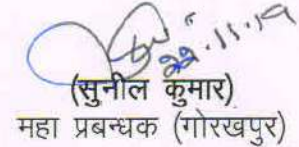 22.11.19
(सुनील कुमार)
महा प्रबन्धक (गोरखपुर)